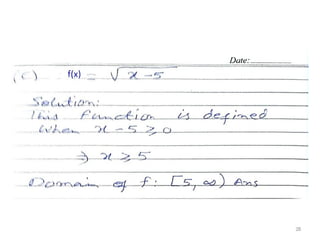 Date:....................
(C) f(x) = √x-5
Solution:
This function is defined
when x-5 ≥ 0
⇒ x ≥ 5
Domain of f: [5, ∞) Ans